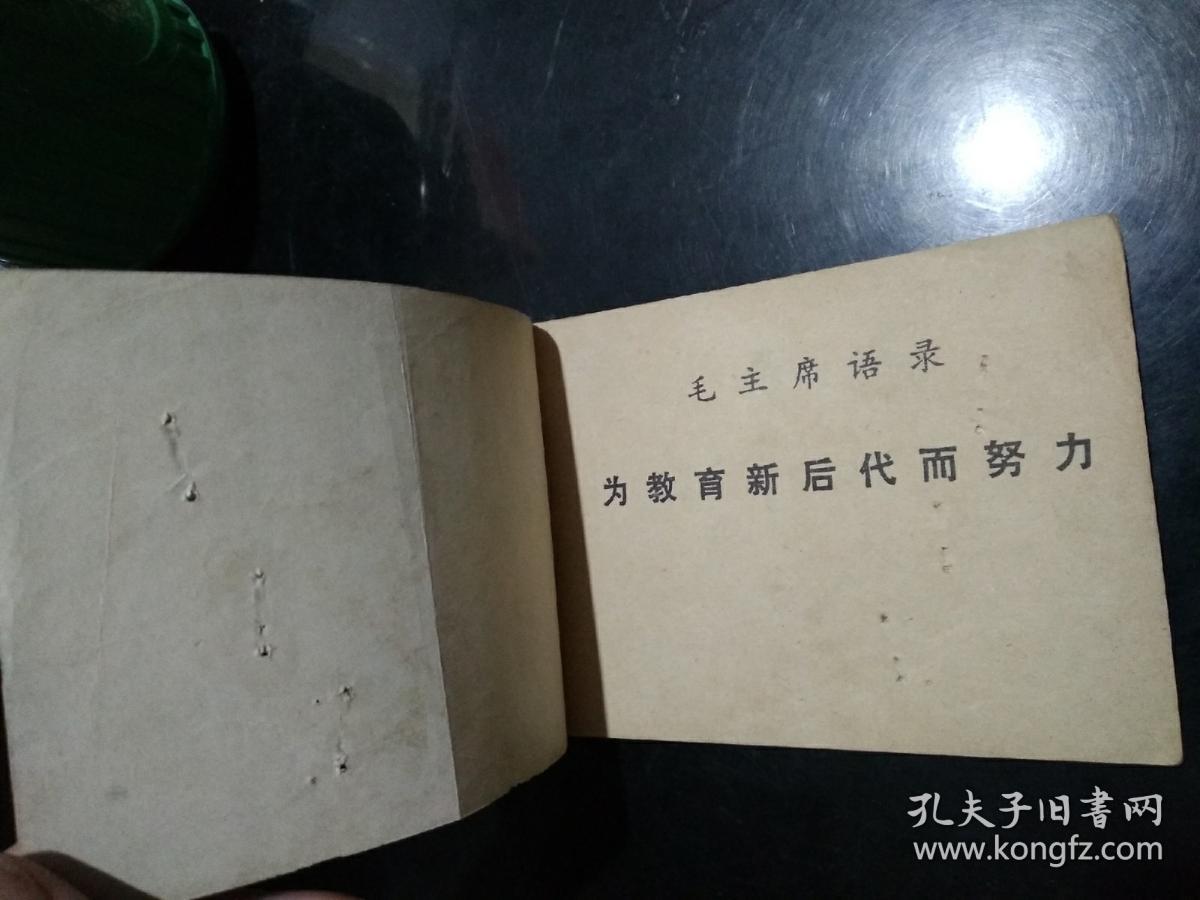 毛主席语录
为教育新后代而努力
孔夫子旧書网
www.kongfz.com